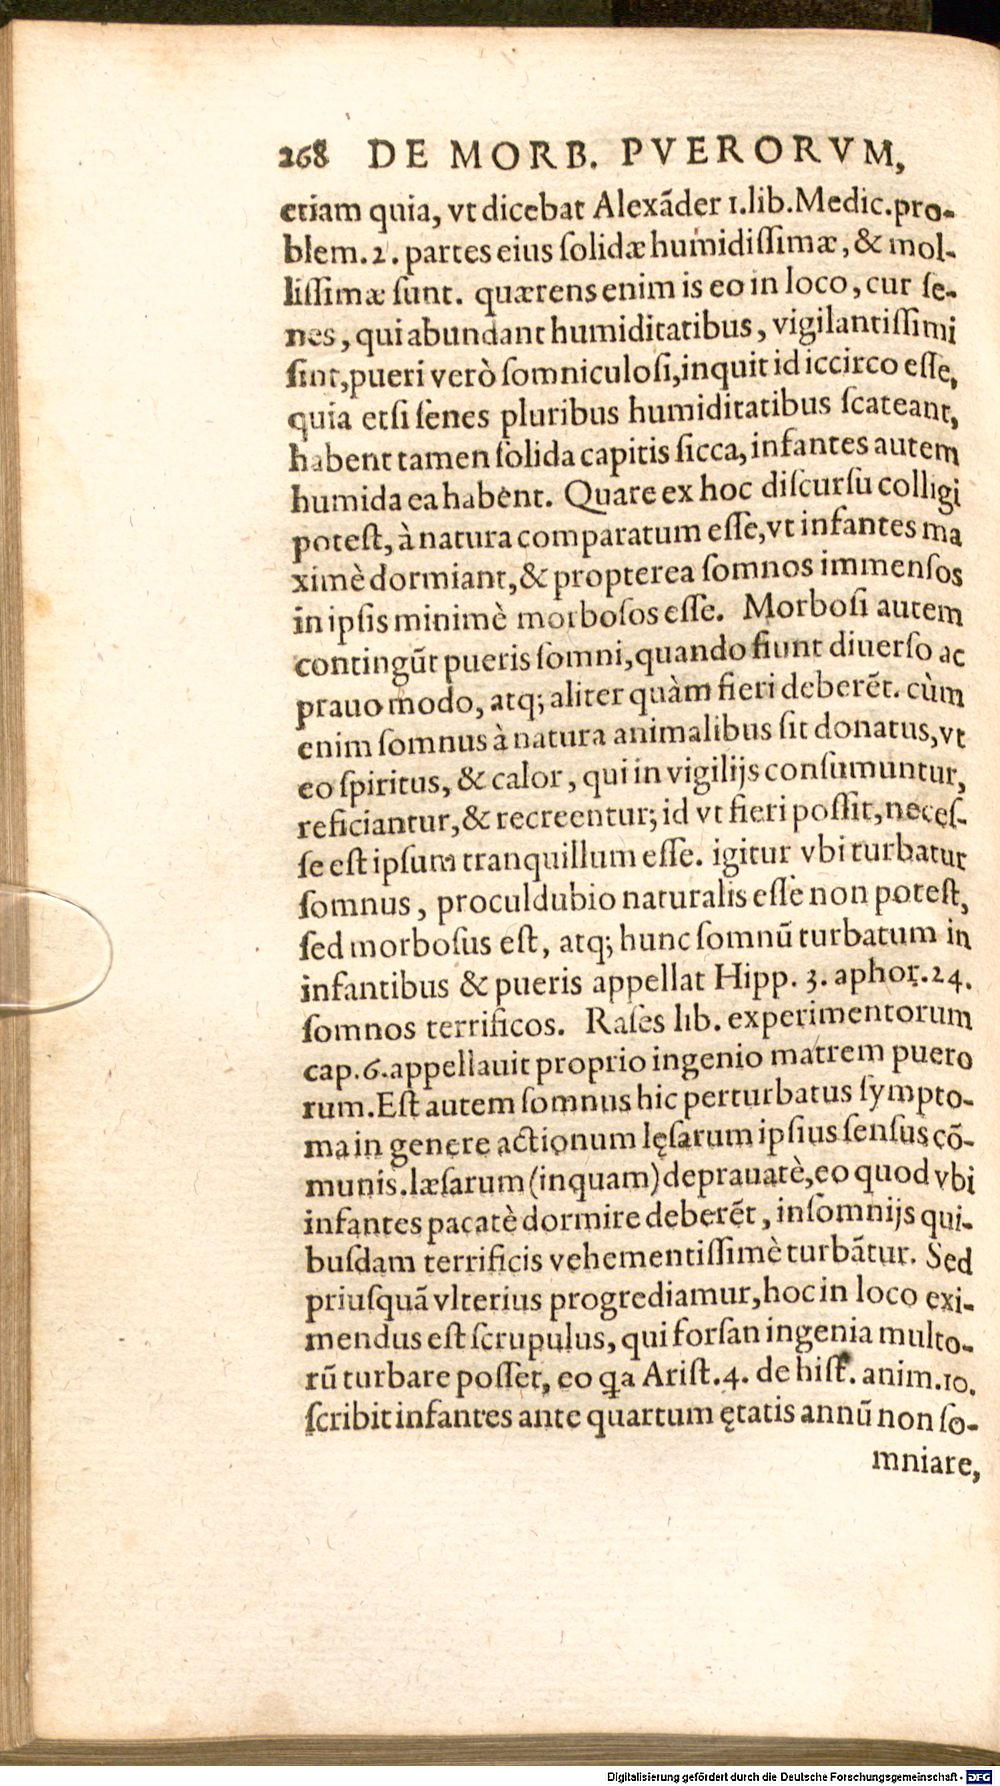 268 DE MORB. PVERORVM,
etiam quia, vt dicebat Alexãder 1.lib.Medic.pro-
blem.2. partes eius ſolidæ humidiſſimæ, & mol-
liſſimæ ſunt. quærens enim is eo in loco, cur ſe-
nes, qui abundant humiditatibus, vigilantiſſimi
ſint, pueri verò ſomniculoſi, inquit id iccirco eſſe,
quia etſi ſenes pluribus humiditatibus ſcateant,
habent tamen ſolida capitis ſicca, infantes autem
humida ea habent. Quare ex hoc diſcurſu colligi
poteſt, à natura comparatum eſſe, vt infantes ma
ximè dormiant, & propterea ſomnos immenſos
in ipſis minimè morboſos eſſe. Morboſi autem
contingũt pueris ſomni, quando fiunt diuerſo ac
prauo modo, atq; aliter quàm fieri deberẽt. cùm
enim ſomnus à natura animalibus ſit donatus, vt
eo ſpiritus, & calor, qui in vigilijs conſumuntur,
reficiantur, & recreentur; id vt fieri poſſit, neceſ-
ſe eſt ipſum tranquillum eſſe. igitur vbi turbatur
ſomnus, proculdubio naturalis eſſe non poteſt,
ſed morboſus eſt, atq; hunc ſomnũ turbatum in
infantibus & pueris appellat Hipp. 3. aphor.24.
ſomnos terrificos. Raſes lib. experimentorum
cap.6.appellauit proprio ingenio matrem puero
rum. Eſt autem ſomnus hic perturbatus ſympto-
ma in genere actionum lęſarum ipſius ſenſus cõ-
munis.læſarum (inquam) deprauatè, eo quod vbi
infantes pacatè dormire deberẽt, inſomnijs qui-
buſdam terrificis vehementiſſimè turbãtur. Sed
priuſquã vlterius progrediamur, hoc in loco exi-
mendus eſt ſcrupulus, qui forſan ingenia multo-
rũ turbare poſſet, eo qa Ariſt.4. de hiſt. anim.10.
ſcribit infantes ante quartum ętatis annũ non ſo-
mniare,
Digitalisierung gefördert durch die Deutsche Forschungsgemeinschaft - DFG